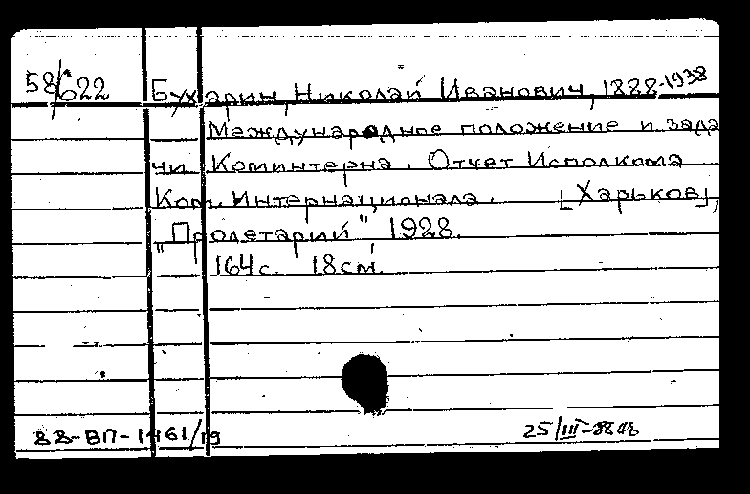 58/622 Бухарин, Николай Иванович, 1888-1938
Международное положение и зада
чи Коминтерна. Отчет Исполкома
Ком. Интернационала. [Харьков],
"Пролетарий", 1928.
164 с. 18 см.
88-ВП-1461/19 25/III-88